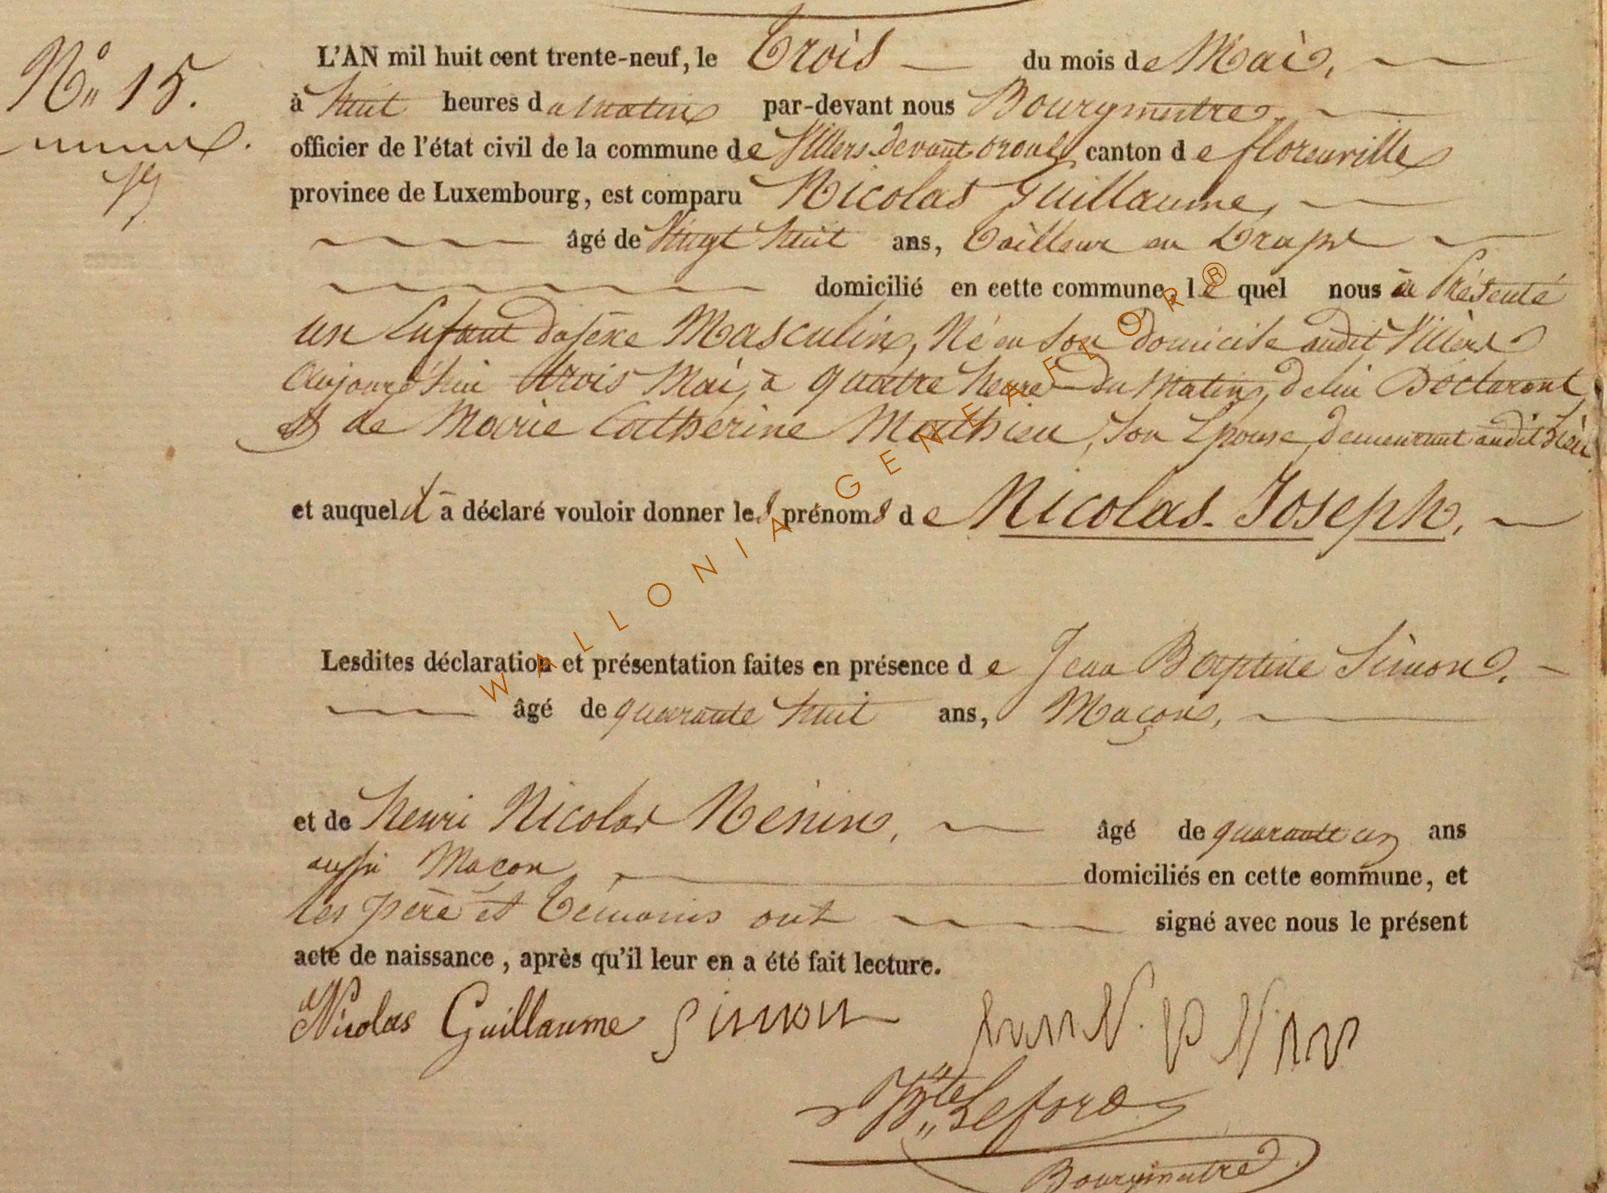 N° 15.
L'AN mil huit cent trente-neuf, le Trois du mois de Mai,
à huit heures du matin par-devant nous Bourgmestre
officier de l'état civil de la commune de Villers devant orval, canton de florenville
province de Luxembourg, est comparu Nicolas Guillaume,
âgé de Vingt huit ans, Tailleur en Draps
domicilié en cette commune, lequel nous à Présenté
un Enfant du sexe Masculin, Né en Son domicile audit Villers
Aujourd'hui trois Mai, à quatre heure du Matin, de lui Déclarant
et de Marie Catherine Mathieu, Son Epouse, demeurant audit Lieu
et auquel il a déclaré vouloir donner les prénoms de Nicolas-Joseph,
Lesdites déclaration et présentation faites en présence de Jean Baptiste Simon,
âgé de quarante huit ans, Maçon,
et de henri Nicolas Nénin, âgé de quarante un ans
aussi Maçon domiciliés en cette commune, et
les père et Témoins ont signé avec nous le présent
acte de naissance, après qu'il leur en a été fait lecture.
Nicolas Guillaume Simon
Bourgmestre
WALLONIA GENEALOR®